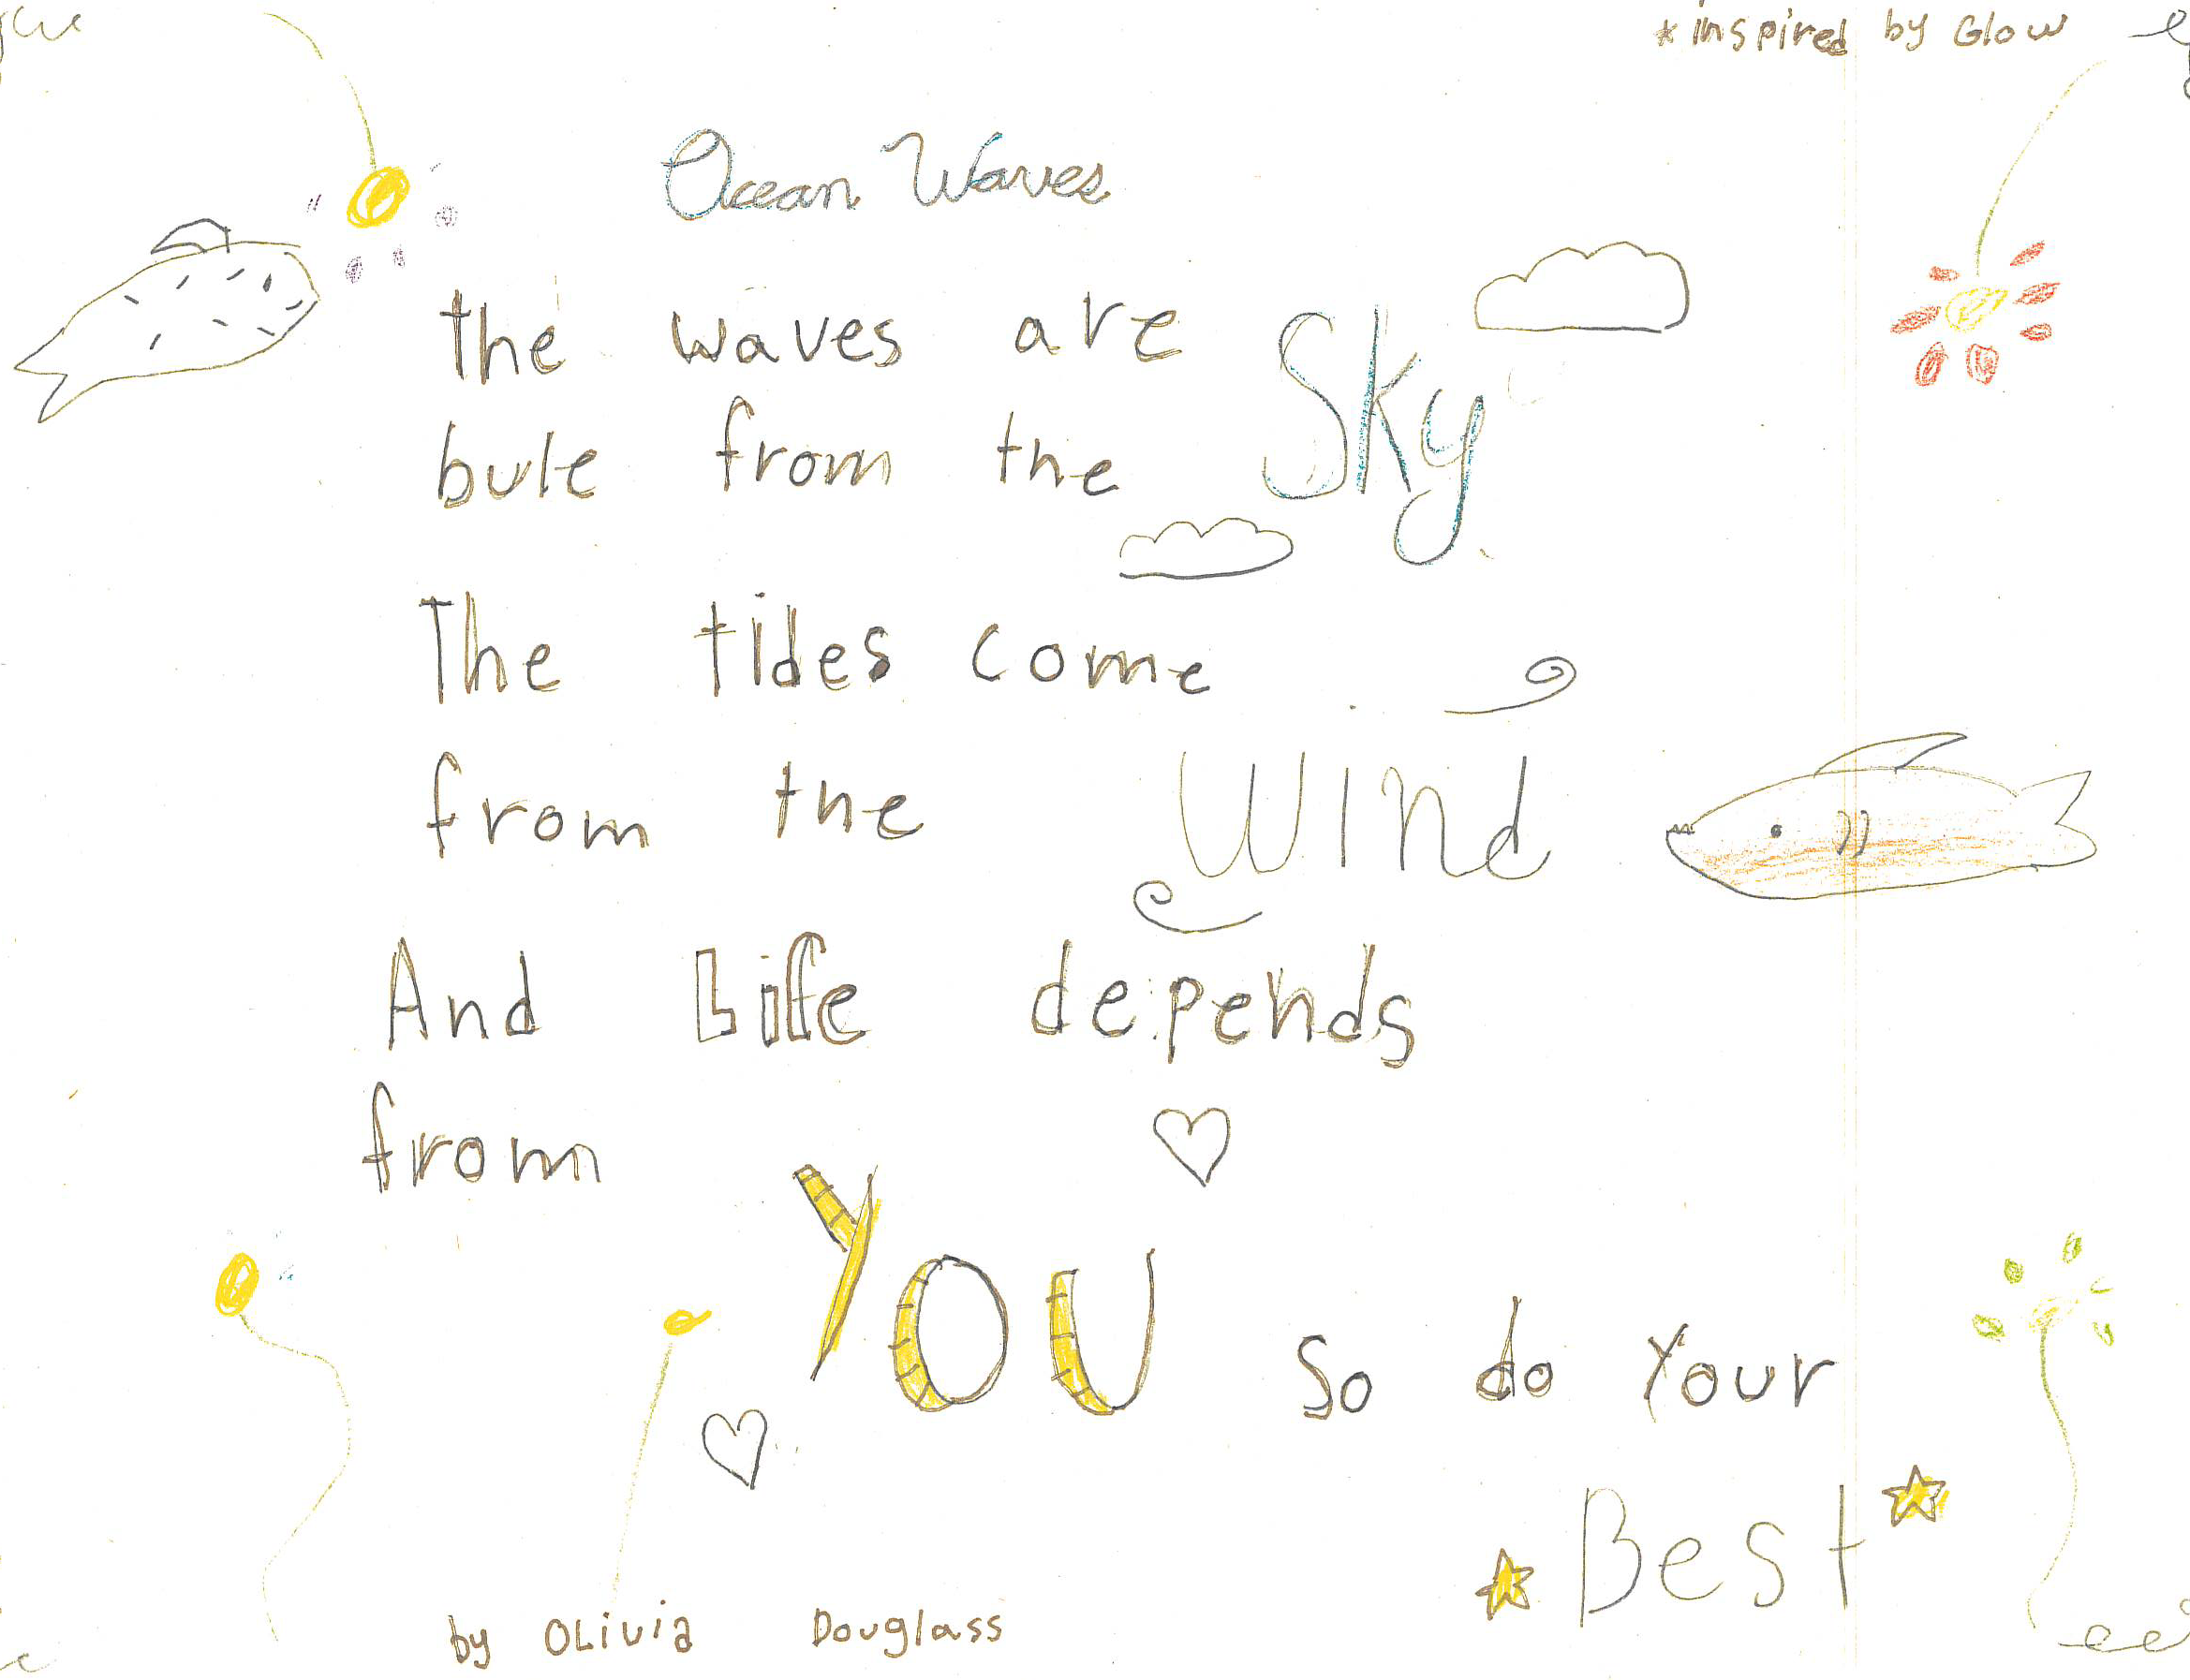 *inspired by Glow
Ocean Waves
the waves are
bule from the Sky
The tides come
from the Wind
And Life depends
from
YOU so do Your
Best
by OLivia Douglass